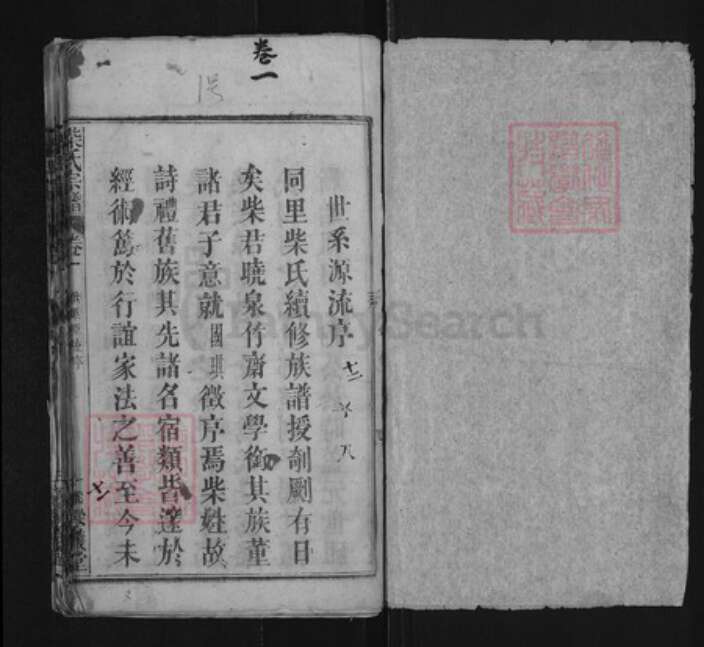 卷一
世系源流序
同里柴氏續修族譜授剞劂有日
矣柴君曉泉竹齋文學銜其族董
諸君子意就國琪徵序焉柴姓故
詩禮舊族其先諸名宿類皆邃於
經術篤於行誼家法之善至今未
柴氏宗譜 卷一
FamilySearch